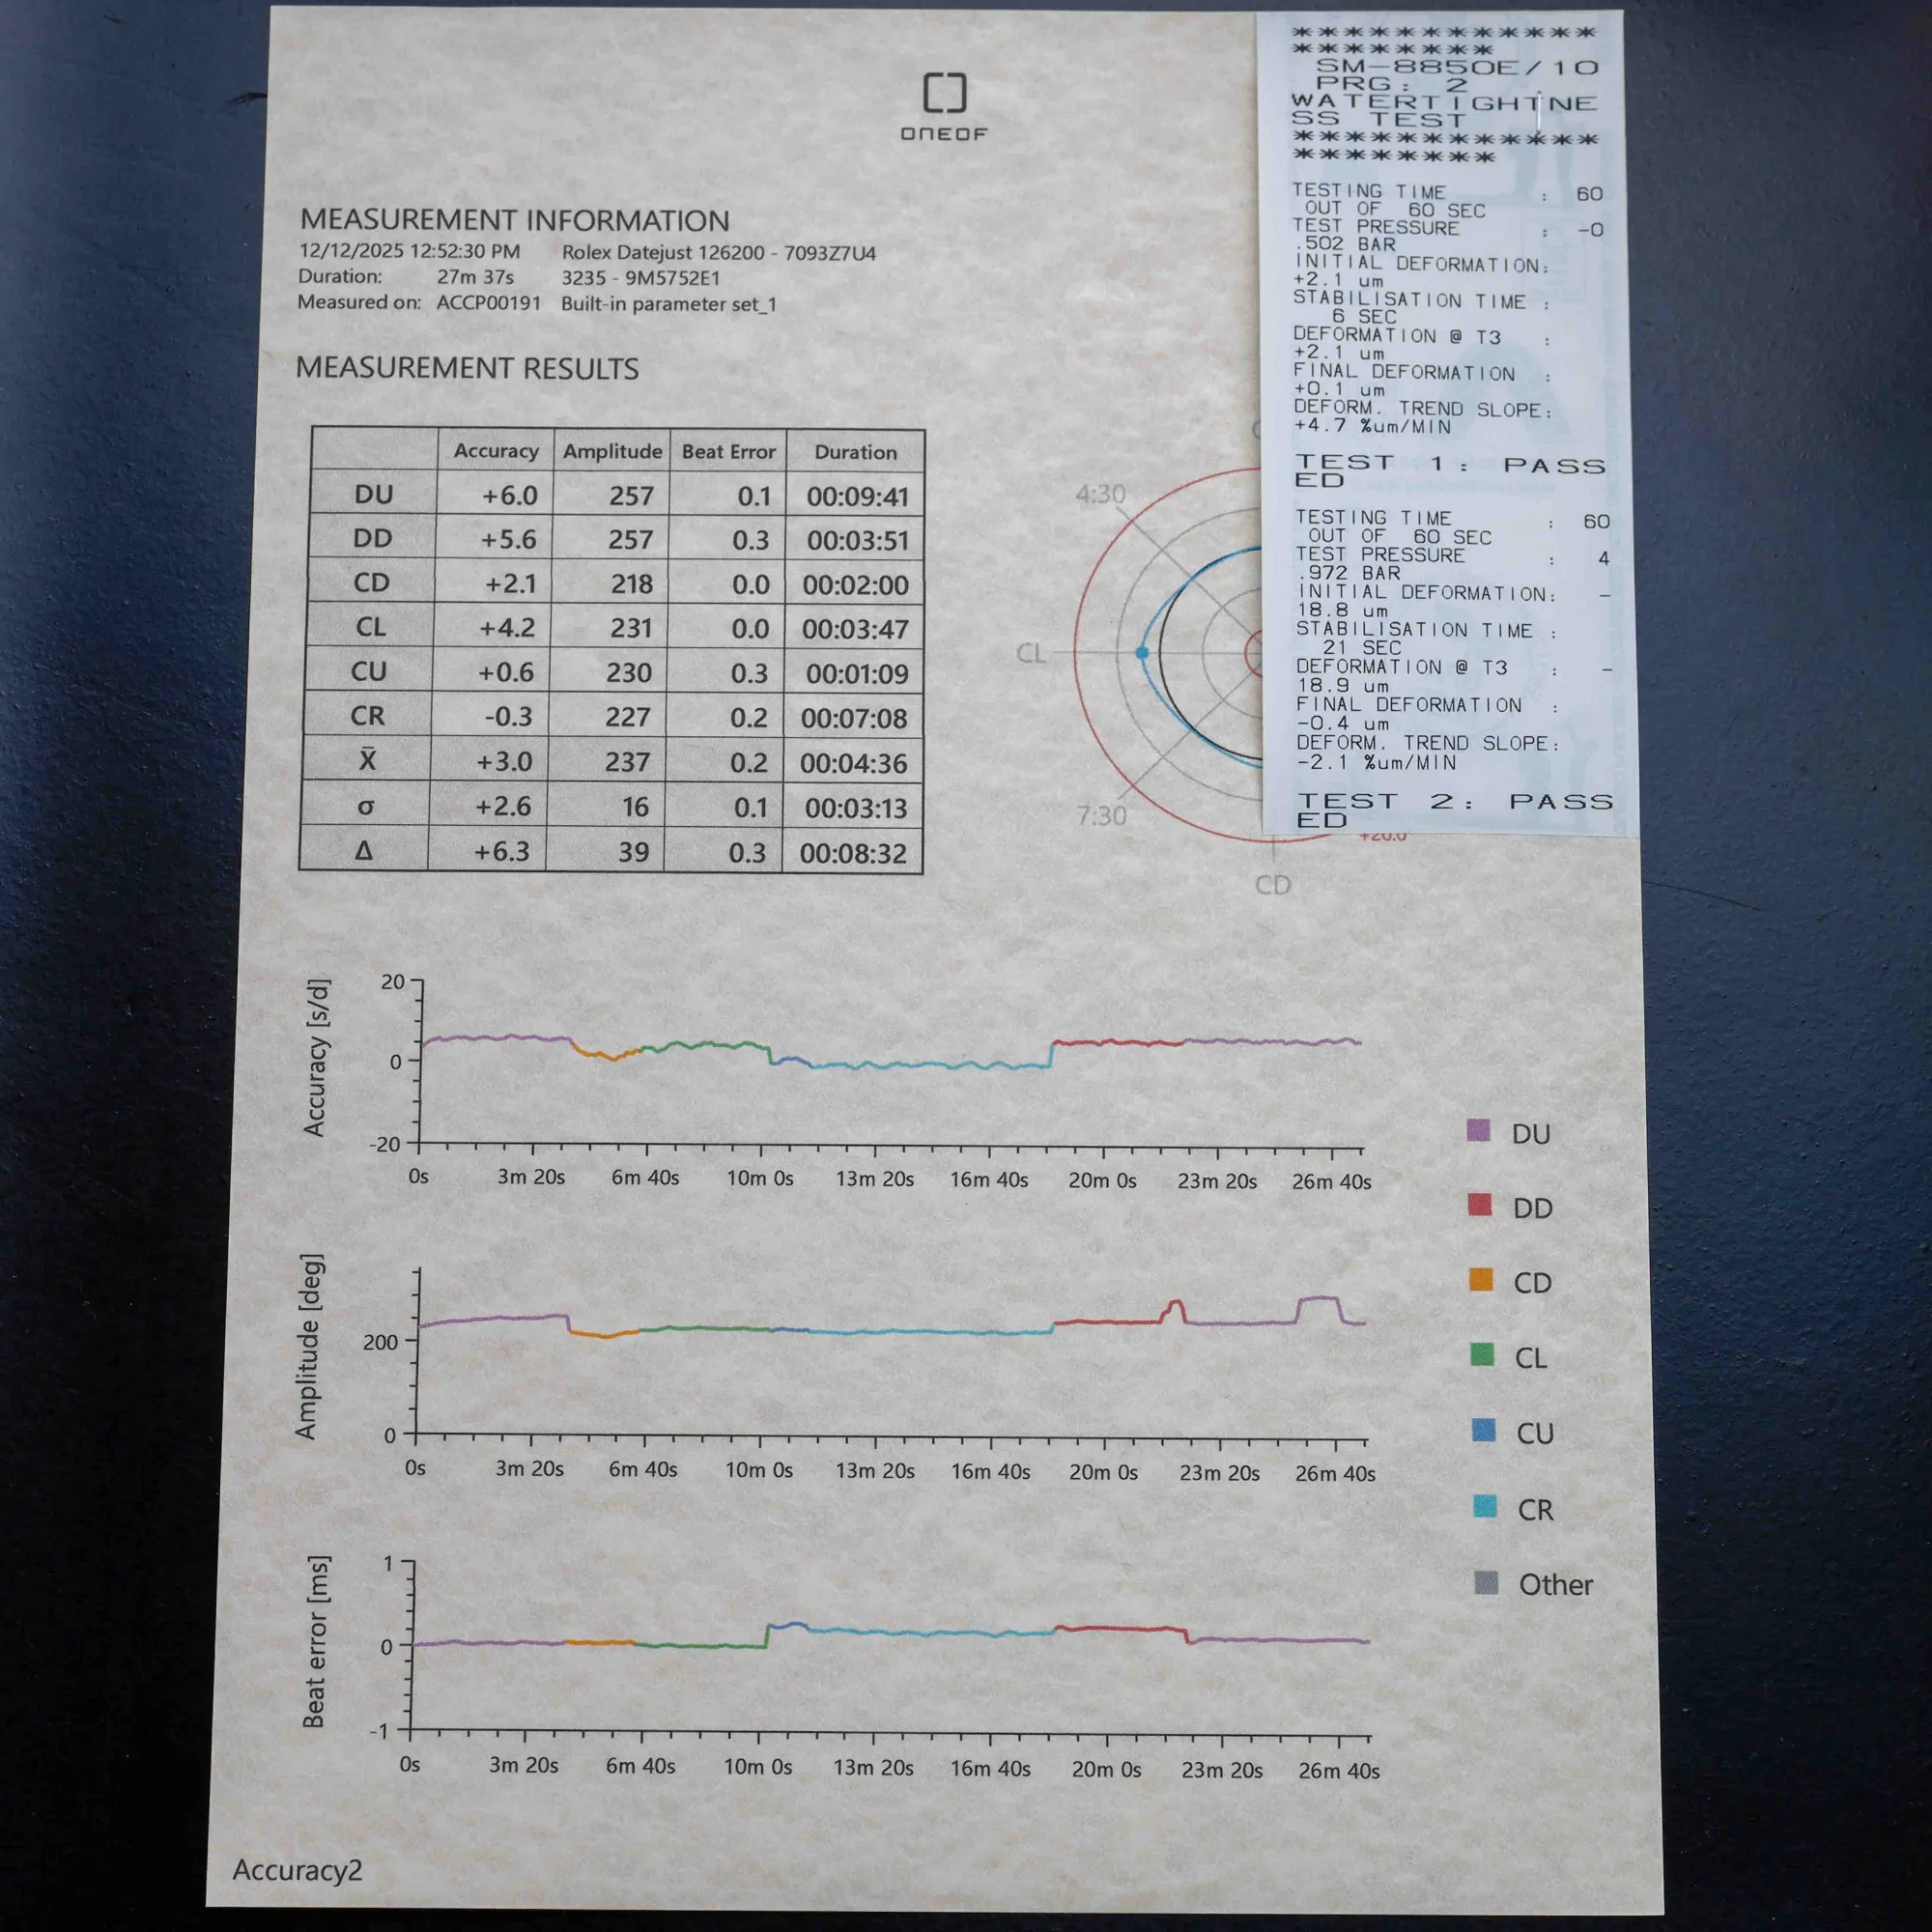 ONEOF
MEASUREMENT INFORMATION
12/12/2025 12:52:30 PM Rolex Datejust 126200 - 7093Z7U4
Duration: 27m 37s 3235 - 9M5752E1
Measured on: ACCP00191 Built-in parameter set_1
MEASUREMENT RESULTS
Accuracy Amplitude Beat Error Duration
DU +6.0 257 0.1 00:09:41
DD +5.6 257 0.3 00:03:51
CD +2.1 218 0.0 00:02:00
CL +4.2 231 0.0 00:03:47
CU +0.6 230 0.3 00:01:09
CR -0.3 227 0.2 00:07:08
X̄ +3.0 237 0.2 00:04:36
σ +2.6 16 0.1 00:03:13
Δ +6.3 39 0.3 00:08:32
4:30
CL
7:30
CD
+20.0
************
********
SM-8850E/10
PRG: 2
WATERTIGHTNE
SS TEST
************
********
TESTING TIME : 60
OUT OF 60 SEC
TEST PRESSURE : -0
.502 BAR
INITIAL DEFORMATION:
+2.1 um
STABILISATION TIME :
6 SEC
DEFORMATION @ T3 :
+2.1 um
FINAL DEFORMATION :
+0.1 um
DEFORM. TREND SLOPE:
+4.7 %um/MIN
TEST 1: PASS
ED
TESTING TIME : 60
OUT OF 60 SEC
TEST PRESSURE : 4
.972 BAR
INITIAL DEFORMATION: -
18.8 um
STABILISATION TIME :
21 SEC
DEFORMATION @ T3 : -
18.9 um
FINAL DEFORMATION :
-0.4 um
DEFORM. TREND SLOPE:
-2.1 %um/MIN
TEST 2: PASS
ED
Accuracy [s/d]
20
0
-20
0s 3m 20s 6m 40s 10m 0s 13m 20s 16m 40s 20m 0s 23m 20s 26m 40s
Amplitude [deg]
200
0
0s 3m 20s 6m 40s 10m 0s 13m 20s 16m 40s 20m 0s 23m 20s 26m 40s
Beat error [ms]
1
0
-1
0s 3m 20s 6m 40s 10m 0s 13m 20s 16m 40s 20m 0s 23m 20s 26m 40s
DU
DD
CD
CL
CU
CR
Other
Accuracy2